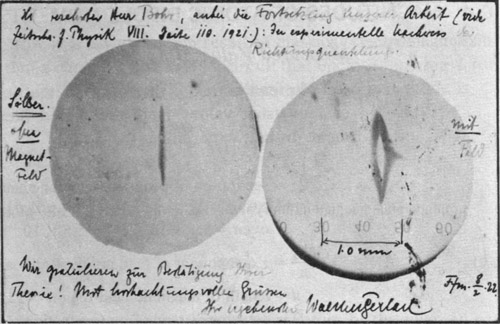 Hr verehrter Herr Bohr, anbei die Fortsetzung unserer Arbeit (vide
Zeitschr. f. Physik VIII. Seite 110. 1921.): Der experimentelle Nachweis der
Richtungsquantelung.
Silber
ohne
Magnet-
Feld
mit
Feld
0 30 40 50 60
1.0 mm
Wir gratulieren zur Bestätigung Ihrer
Theorie! Mit hochachtungsvollen Grüssen
Ihr ergebenster Walther Gerlach
Ffm. 8/2. 22